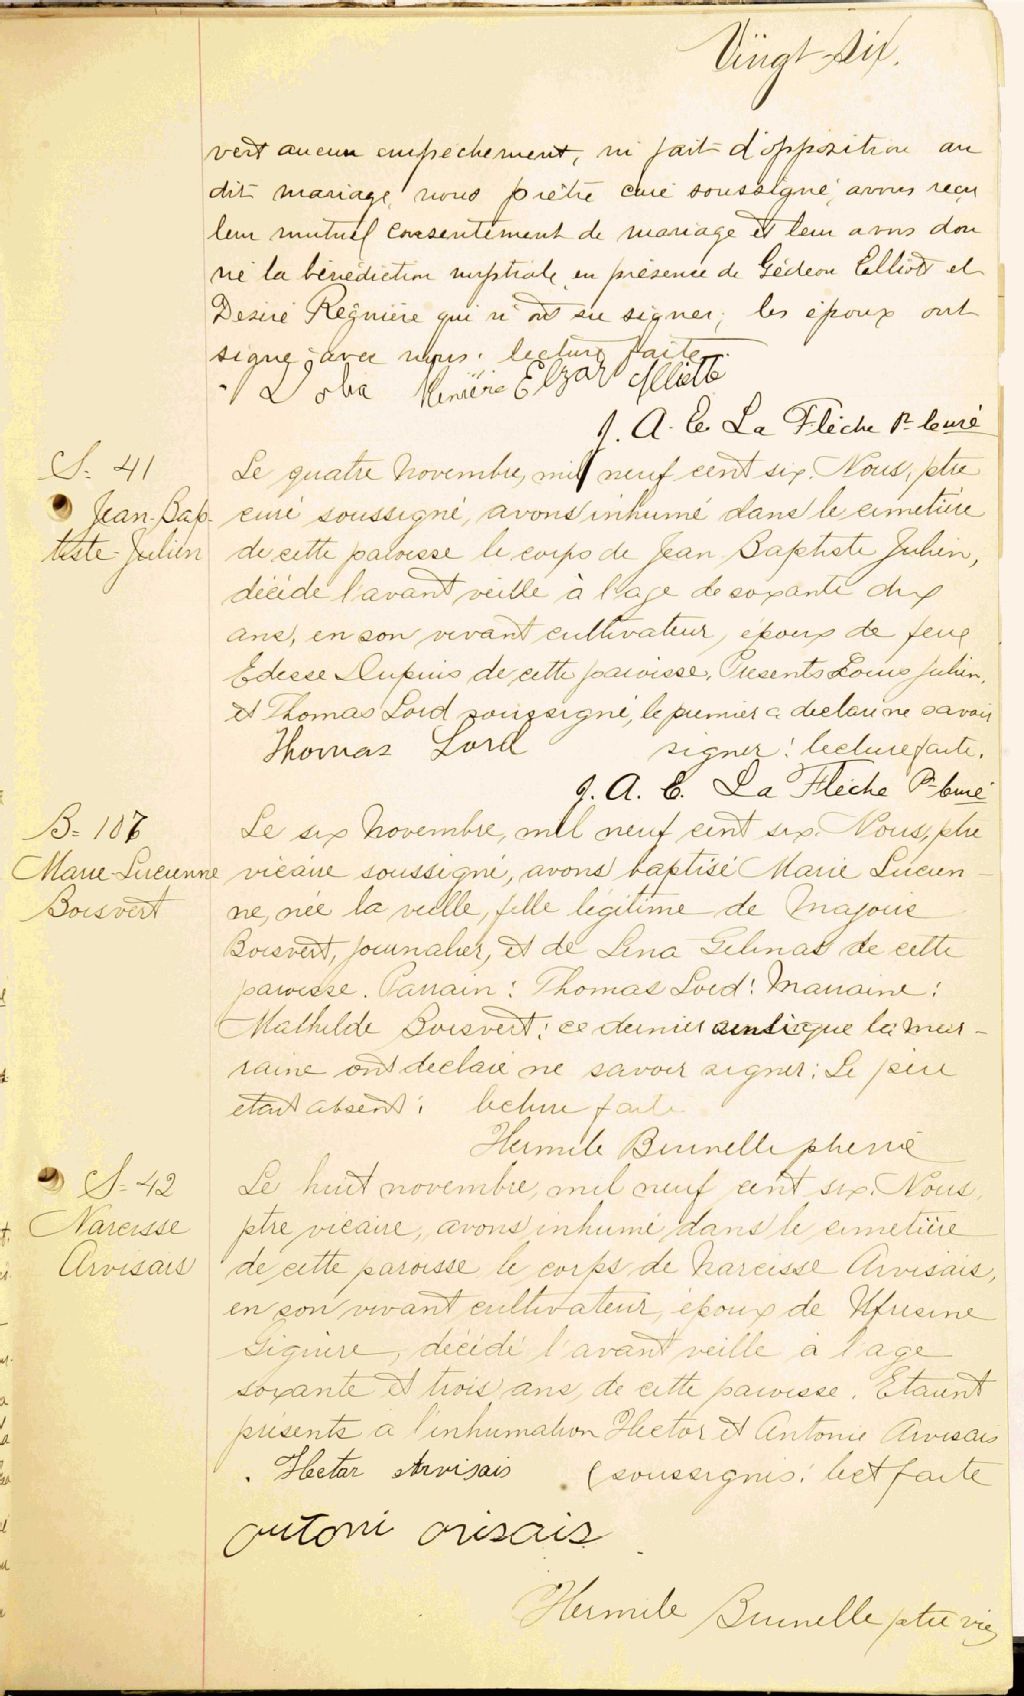 Vingt-six.
vert aucun empêchement, ni fait d'opposition au
dit mariage, nous prêtre curé soussigné, avons reçu
leur mutuel consentement de mariage et leur avons don
né la bénédiction nuptiale en présence de Gédéon Elliott et
Desiré Régnière qui n'ont su signer; les époux ont
signé avec nous. lecture faite.
Elzar
J. A. E. La Flèche Ptr Curé
S- 41
Jean-Bap-
tiste-Julien
Le quatre Novembre, mil neuf cent six. Nous, ptre
curé soussigné, avons inhumé dans le cimetière
de cette paroisse le corps de Jean Baptiste Julien,
décédé l'avant veille à l'age de soxante dix
ans, en son vivant cultivateur, époux de feue
Edesse Dupuis de cette paroisse. Presents Louis Julien,
et Thomas Lord soussigné, le premier a declaré ne savoir
Thomas Lord signer: lecture faite.
J. A. E. La Flèche Ptr Curé
B- 107
Marie-Lucienne
Boisvert
Le six Novembre, mil neuf cent six. Nous, ptre
vicaire soussigné, avons baptisé Marie Lucien-
ne, née la veille, fille légitime de Majorie
Boisvert, journalier, et de Lena Gelinas de cette
paroisse. Parrain: Thomas Lord: Marraine:
Mathilde Boisvert: ce dernier ainsi que la mar-
raine ont declaré ne savoir signer: Le père
était absent: lecture faite
Hermile Brunelle ptre vic
S- 42
Narcisse
Arvisais
Le huit novembre, mil neuf cent six. Nous,
ptre vicaire, avons inhumé dans le cimetière
de cette paroisse le corps de Narcisse Arvisais,
en son vivant cultivateur, époux de
décédé l'avant veille à l'age
soxante et trois ans, de cette paroisse. Etaient
présents à l'inhumation Hector et Antonie Arvisais
Hector Arvisais (soussignés: lect faite
Antoni Arisais
Hermile Brunelle ptre vic